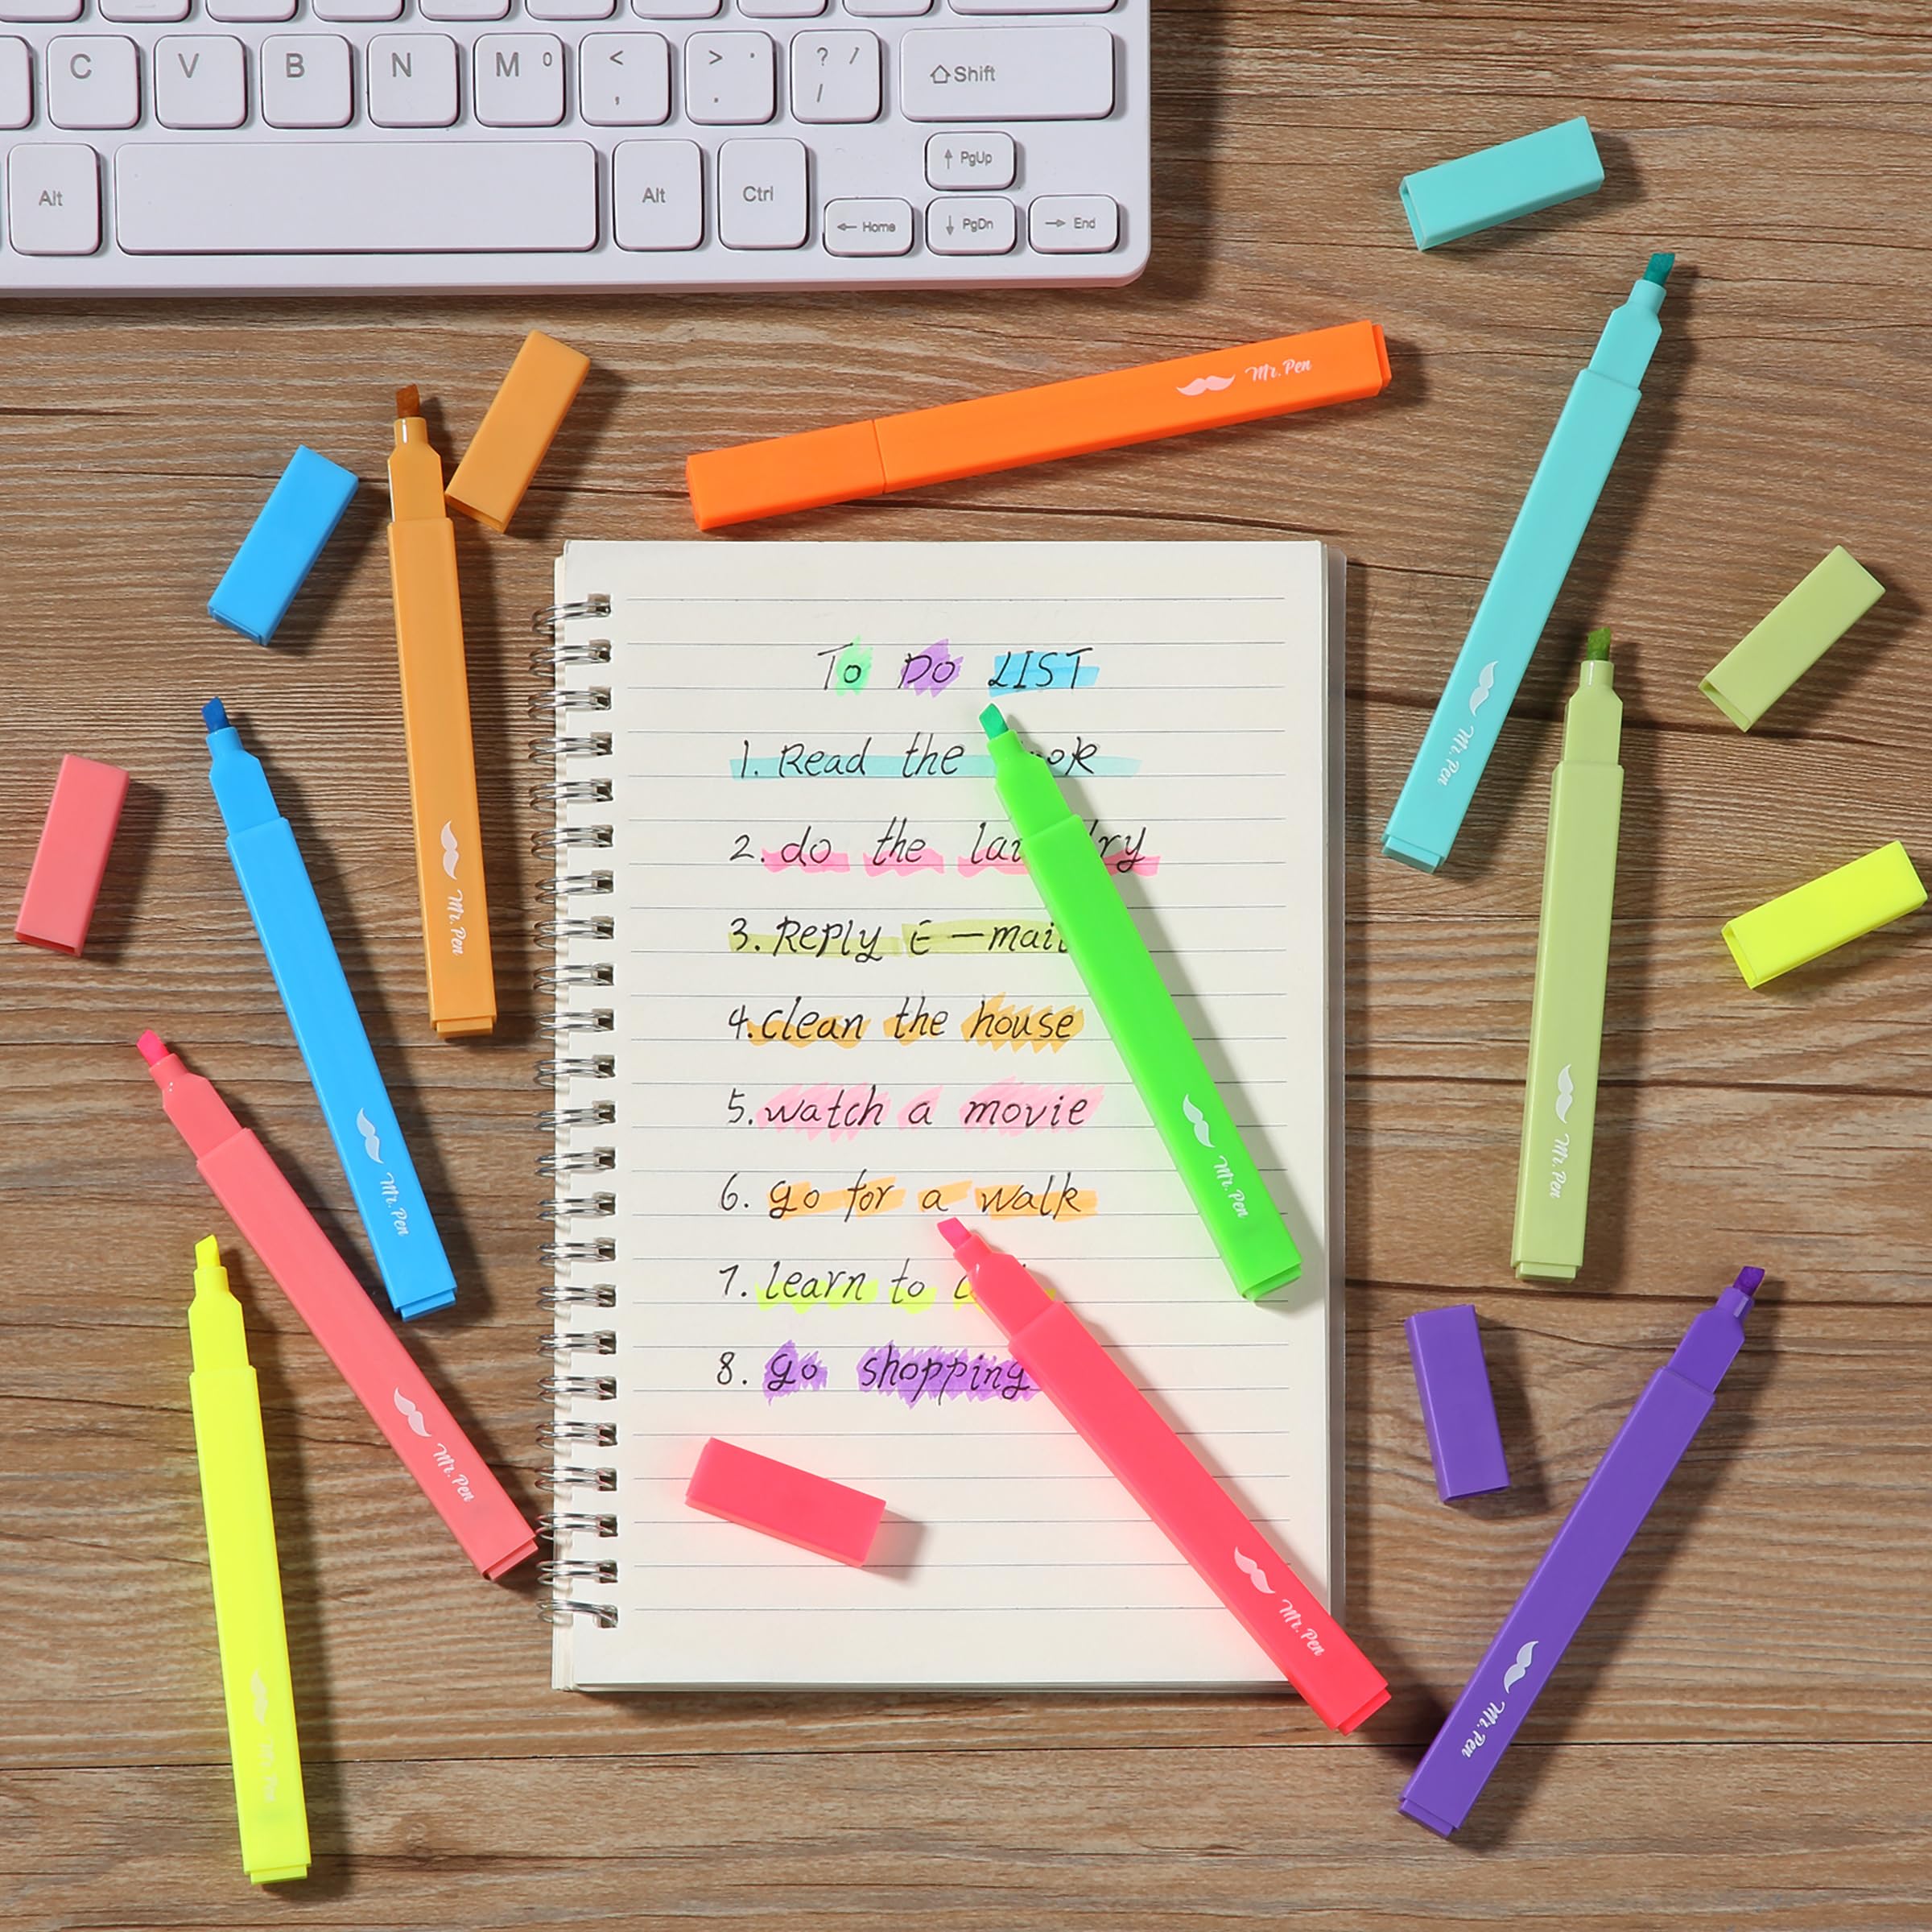 C V B N M 0 < , > . ? / /
⇧ Shift
Alt Alt Ctrl
↑ PgUp
← Home ↓ PgDn → End
Mr. Pen
Mr. Pen
Mr. Pen
To Do LIST
1. Read the
2. do the
3. Reply E-mail
4. clean the house
5. watch a movie
6. go for a walk
7. learn to
8. go shopping
Mr. Pen
Mr. Pen
Mr. Pen
Mr. Pen
Mr. Pen
Mr. Pen
Mr. Pen
Mr. Pen